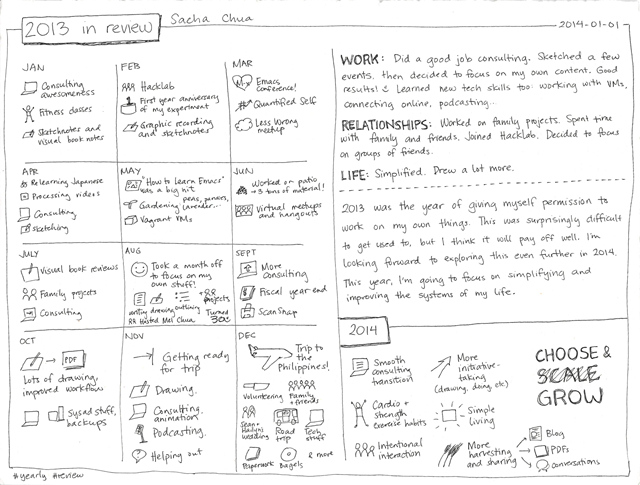 2013 in review
Sacha Chua
2014-01-01
JAN
Consulting
awesomeness
Fitness classes
Sketchnotes and
visual book notes
FEB
Hacklab
First year anniversary
of my experiment
Graphic recording
and sketchnotes
MAR
Emacs
conference!
Quantified Self
Less Wrong
meetup
APR
Relearning Japanese
Processing videos
Consulting
Sketching
MAY
"How to Learn Emacs"
was a big hit
Gardening peas, pansies,
lavender...
Vagrant VMs
JUN
Worked on patio
→ 3 tons of material!
Virtual meetups
and hangouts
JULY
Visual book reviews
Family projects
Consulting
AUG
Took a month off
to focus on my
own stuff!
writing drawing outlining
+ projects
Hosted Mel Chua
Turned
30
SEPT
More
Consulting
Fiscal year end
ScanSnap
OCT
PDF
Lots of drawing,
improved workflow
Sysad stuff,
backups
NOV
Getting ready
for trip
Drawing
Consulting,
animation
Podcasting
Helping out
DEC
Trip to
the
Philippines!
Volunteering
Family
+ friends
wedding
Road
trip
Tech
stuff
Paperwork
Bagels
& more
WORK: Did a good job consulting. Sketched a few
events, then decided to focus on my own content. Good
results! Learned new tech skills too: working with VMs,
connecting online, podcasting..
RELATIONSHIPS: Worked on family projects. Spent time
with family and friends. Joined HackLab. Decided to focus
on groups of friends.
LIFE: Simplified. Drew a lot more.
2013 was the year of giving myself permission to
work on my own things. This was surprisingly difficult
to get used to, but I think it will pay off well. I'm
looking forward to exploring this even further in 2014.
This year, I'm going to focus on simplifying and
improving the systems of my life.
2014
Smooth
consulting
transition
More
initiative-
taking
(drawing, doing, etc)
CHOOSE &
SCALE
GROW
Cardio +
strength
exercise habits
Simple
living
Intentional
interaction
More
harvesting
and sharing
Blog
PDFs
conversations
#yearly #review